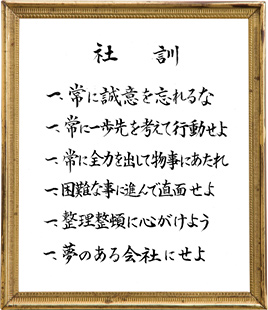 社 訓
一、常に誠意を忘れるな
一、常に一歩先を考えて行動せよ
一、常に全力を出して物事にあたれ
一、困難な事に進んで直面せよ
一、整理整頓に心がけよう
一、夢のある会社にせよ